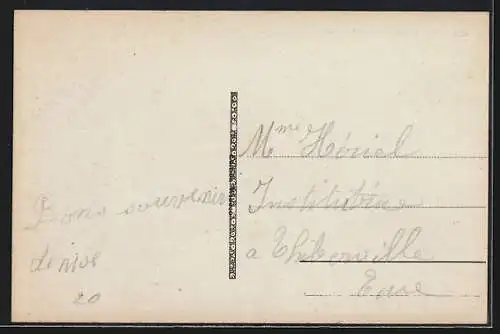 Bons souvenir
de
20
Mme Hériel
Institutrice
a Thiberville
Eure